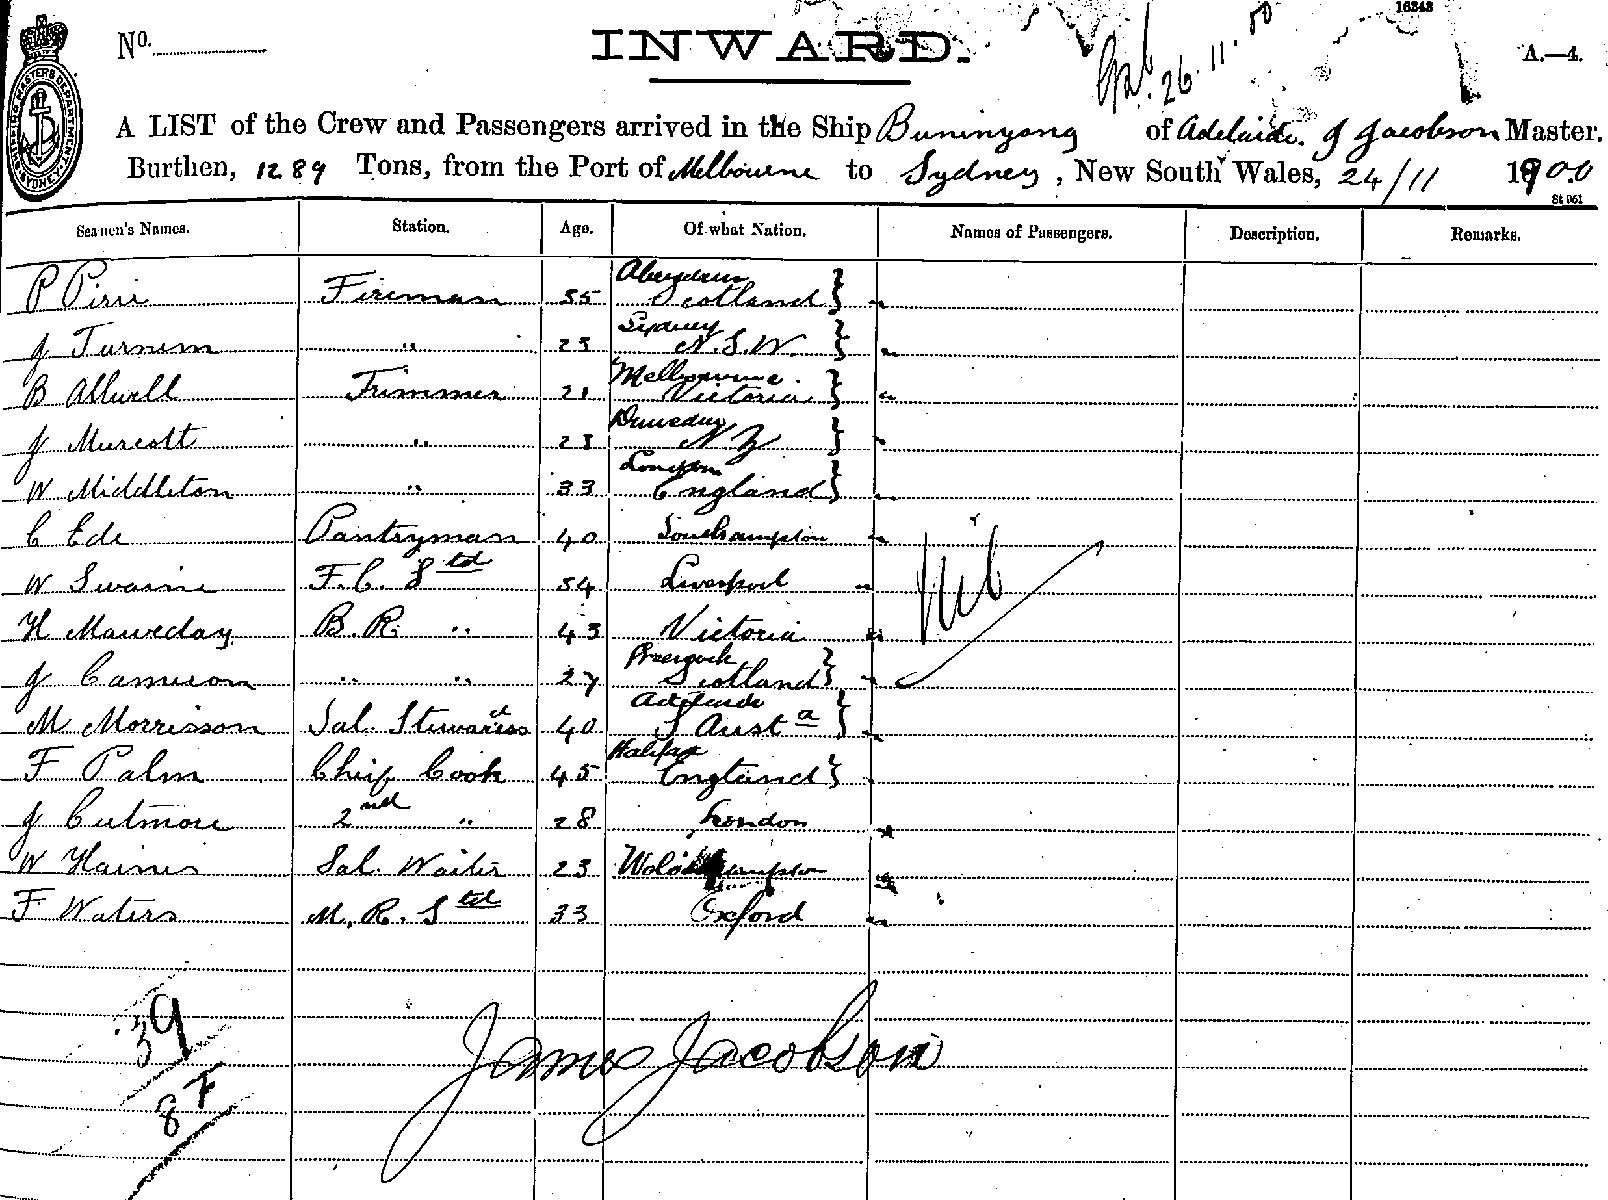 16343
No. INWARD. A.—4.
26.11.00
A LIST of the Crew and Passengers arrived in the Ship Buninyong of Adelaide. J Jacobson Master.
Burthen, 1289 Tons, from the Port of Melbourne to Sydney, New South Wales, 24/11 1900
St 061
Seamen's Names. Station. Age. Of what Nation. Names of Passengers. Description. Remarks.
P Pirie Fireman 35 Aberdeen Scotland }
J " 23 Sydney N.S.W. }
B Allwell Trimmer 21 Melbourne Victoria }
J Murcott " 23 Dunedin N Z }
W Middleton " 33 London England }
C Ede Pantryman 40 Southampton
W Swaine F.C. Std 54 Liverpool
Nil
H B.R. " 43 Victoria
J Cameron " " 27 Greenock Scotland }
M Morrisson Sal. Stewardess 40 Adelaide S Austa }
F Palm Chief Cook 45 Halifax England }
J Cutmore 2nd " 28 London
W Haines Sal. Waiter 23
F Waters M.R. Std 33 Oxford
39
James Jacobson
8 F